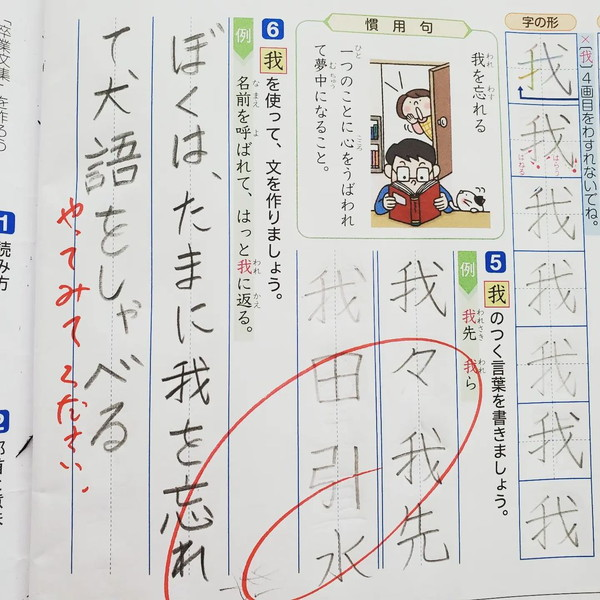 字の形
×〔我〕4画目をわすれないでね。
我
我
はねる
はらう
我
我
我
我
我
慣用句
我を忘れる
われ
わす
一つのことに心をうばわれ
ひと
こころ
て夢中になること。
むちゅう
5 我のつく言葉を書きましょう。
例 我先 我ら
われさき
われ
我々我先
我田引水
6 我を使って、文を作りましょう。
例 名前を呼ばれて、はっと我に返る。
なまえ
よ
われ
かえ
ぼくは、たまに我を忘れ
て犬語をしゃべる
やってみてください。
「卒業文集」を作ろう
1 読み方
2